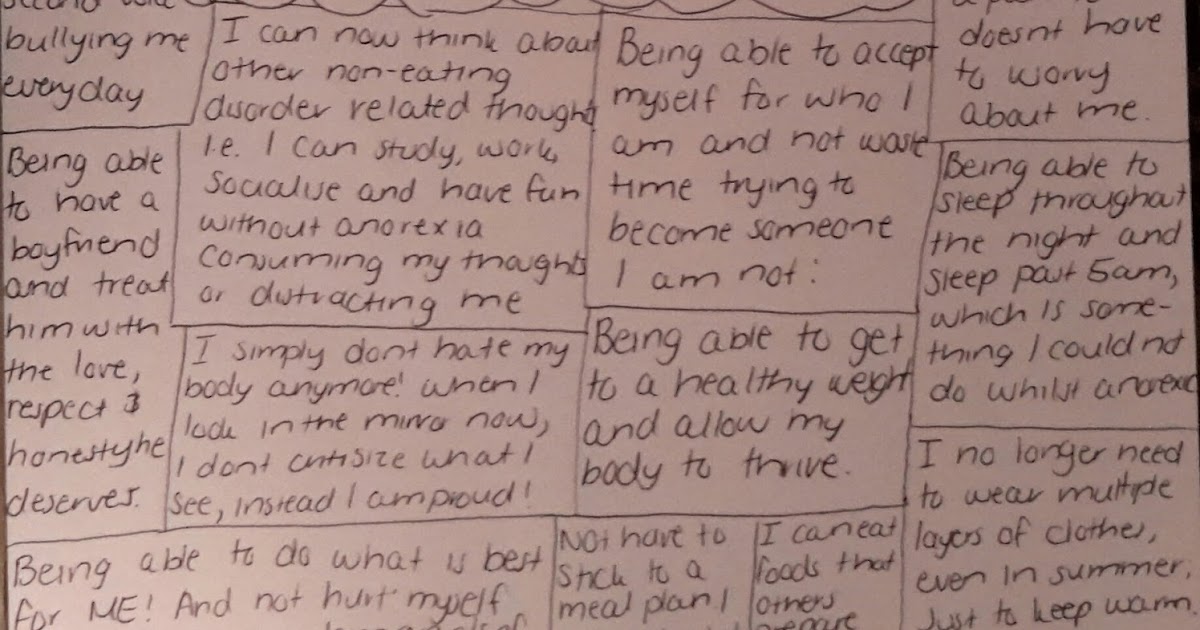 bullying me
everyday
I can now think about
other non-eating
disorder related thoughts
i.e. I can study, work,
socialise and have fun
without anorexia
consuming my thoughts
or distracting me
Being able to accept
myself for who I
am and not waste
time trying to
become someone
I am not:
doesnt have
to worry
about me.
Being able
to have a
boyfriend
and treat
him with
the love,
respect &
honesty he
deserves.
I simply dont hate my
body anymore! when I
look in the mirror now,
I dont critisize what I
see, instead I am proud!
Being able to get
to a healthy weight
and allow my
body to thrive.
Being able to
sleep throughout
the night and
sleep past 5am,
which is some-
thing I could not
do whilst anorexic
I no longer need
to wear multiple
layers of clothes,
even in summer,
Just to keep warm.
Being able to do what is best
for ME! And not hurt myself
Not have to
stick to a
meal plan!
I can eat
foods that
others